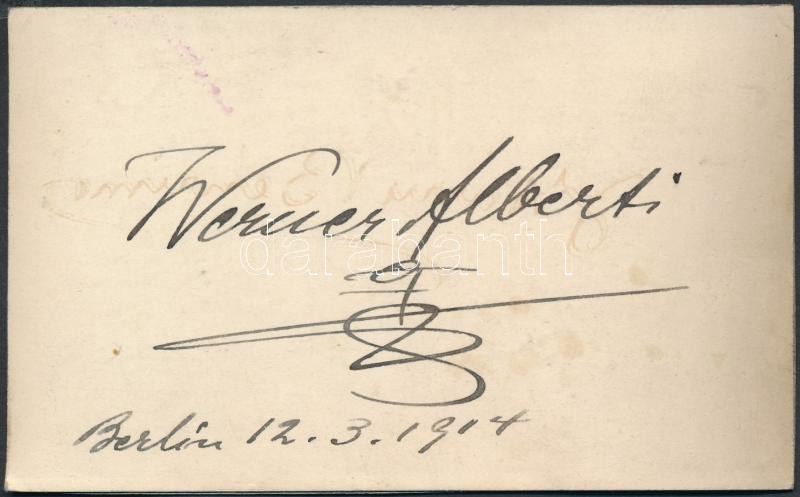 Werner Alberti
darabanth
Berlin 12.3.1914